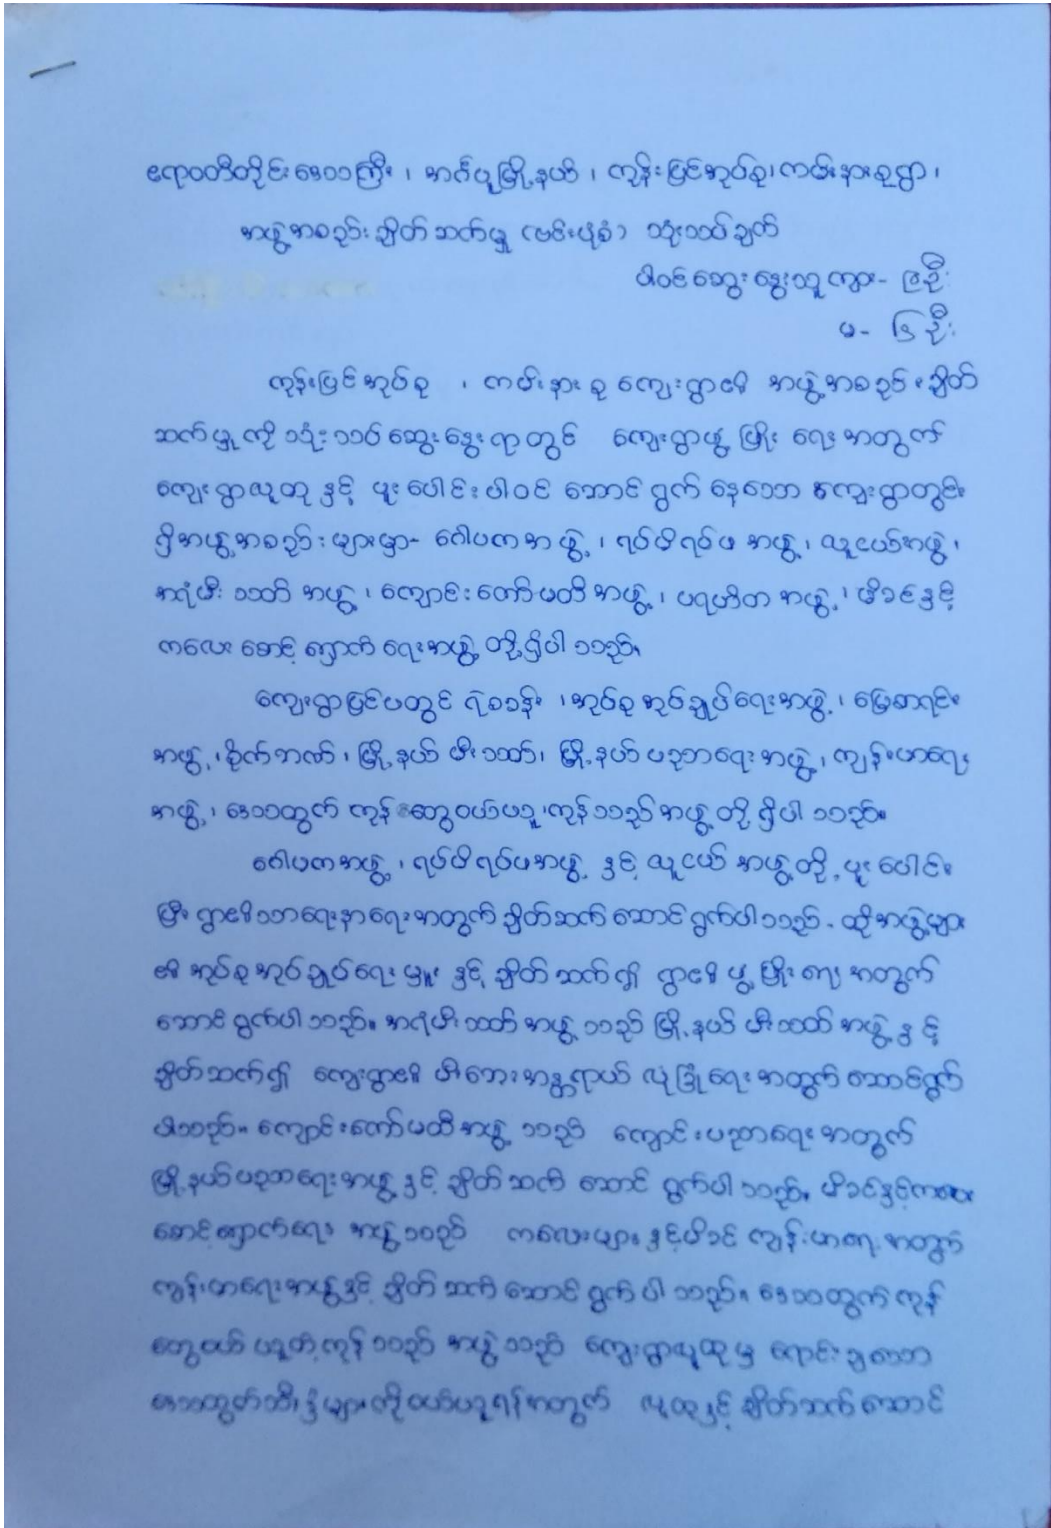 ဧရာဝတီတိုင်းဒေသကြီး၊ အင်္ဂပူမြို့နယ်၊ ကုန်းပြင်အုပ်စု၊ ကမ်းနားစုရွာ၊
အဖွဲ့အစည်းချိတ်ဆက်မှု (ဗင်းပုံစံ) သုံးသပ်ချက်
ပါဝင်ဆွေးနွေးသူ ကျား- ၉ဦး
မ- ၆ဦး
ကုန်းပြင်အုပ်စု ၊ ကမ်းနားစု ကျေးရွာ၏ အဖွဲ့အစည်းချိတ်
ဆက်မှုကို သုံးသပ်ဆွေးနွေးရာတွင် ကျေးရွာဖွံ့ဖြိုးရေးအတွက်
ကျေးရွာလူထုနှင့် ပူးပေါင်းပါဝင် ဆောင်ရွက်နေသော ကျေးရွာတွင်း
ရှိအဖွဲ့အစည်းများမှာ- ဂေါပကအဖွဲ့၊ ရပ်မိရပ်ဖအဖွဲ့၊ လူငယ်အဖွဲ့၊
အရံမီးသတ်အဖွဲ့၊ ကျောင်းကော်မတီအဖွဲ့၊ ပရဟိတအဖွဲ့၊ မိခင်နှင့်
ကလေးစောင့်ရှောက်ရေးအဖွဲ့တို့ရှိပါသည်။
ကျေးရွာပြင်ပတွင် ရဲစခန်း ၊အုပ်စုအုပ်ချုပ်ရေးအဖွဲ့၊ မြေစာရင်း
အဖွဲ့၊ စိုက်ဘဏ်၊ မြို့နယ်မီးသတ်၊ မြို့နယ်ပညာရေးအဖွဲ့၊ ကျန်းမာရေး
အဖွဲ့၊ ဒေသထွက်ကုန် တွေဝယ်ယူ၊ကုန်သည်အဖွဲ့တို့ရှိပါသည်။
ဂေါပကအဖွဲ့၊ ရပ်မိရပ်ဖအဖွဲ့နှင့် လူငယ်အဖွဲ့တို့ ပူးပေါင်း
ပြီး ရွာ၏သာရေးနာရေးအတွက် ချိတ်ဆက်ဆောင်ရွက်ပါသည်. ထိုအဖွဲ့များ
၏ အုပ်စုအုပ်ချုပ်ရေးမှူးနှင့် ချိတ်ဆက်၍ ရွာ၏ဖွံ့ဖြိုးရေးအတွက်
ဆောင်ရွက်ပါသည်။ အရံမီးသတ်အဖွဲ့သည် မြို့နယ်မီးသတ်အဖွဲ့နှင့်
ချိတ်ဆက်၍ ကျေးရွာ၏ မီးဘေးအန္တရာယ် လုံခြုံရေးအတွက် ဆောင်ရွက်
ပါသည်။ ကျောင်းကော်မတီအဖွဲ့သည် ကျောင်းပညာရေးအတွက်
မြို့နယ်ပညာရေးအဖွဲ့နှင့် ချိတ်ဆက် ဆောင်ရွက်ပါသည်။ မိခင်နှင့်ကလေး
စောင့်ရှောက်ရေး အဖွဲ့သည် ကလေးများနှင့်မိခင် ကျန်းမာရေးအတွက်
ကျန်းမာရေးအဖွဲ့နှင့် ချိတ်ဆက် ဆောင်ရွက်ပါသည်။ ဒေသထွက်ကုန်
တွေဝယ်ယူတဲ့ကုန်သည်အဖွဲ့သည် ကျေးရွာလူထုမှ ရောင်းချသော
ဒေသထွက်သီးနှံများကိုဝယ်ယူရန်အတွက် လူထုနှင့်ချိတ်ဆက်ဆောင်